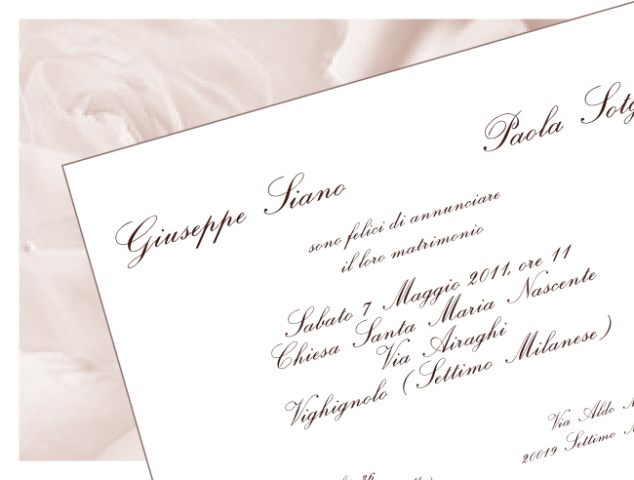 Paola
Giuseppe Siano
sono felici di annunciare
il loro matrimonio
Sabato 7 Maggio 2011, ore 11
Chiesa Santa Maria Nascente
Via Airaghi
Vighignolo (Settimo Milanese)
Via Aldo
20019 Settimo
36